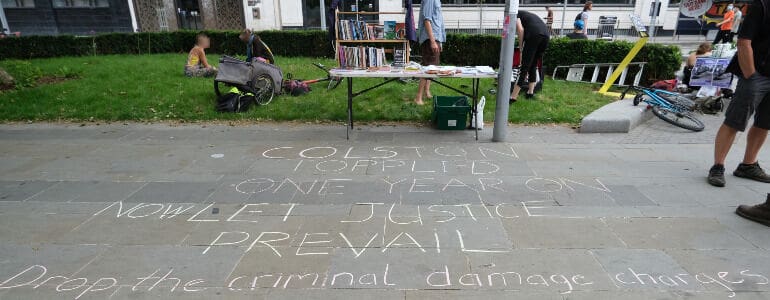 COLSTON
TOPPLED
ONE YEAR ON
NOW LET JUSTICE
PREVAIL
Drop the criminal damage charges